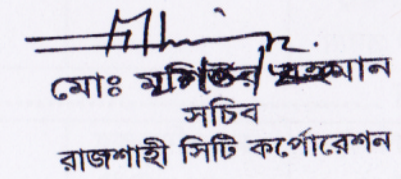 মোঃ মশিউর রহমান
সচিব
রাজশাহী সিটি কর্পোরেশন